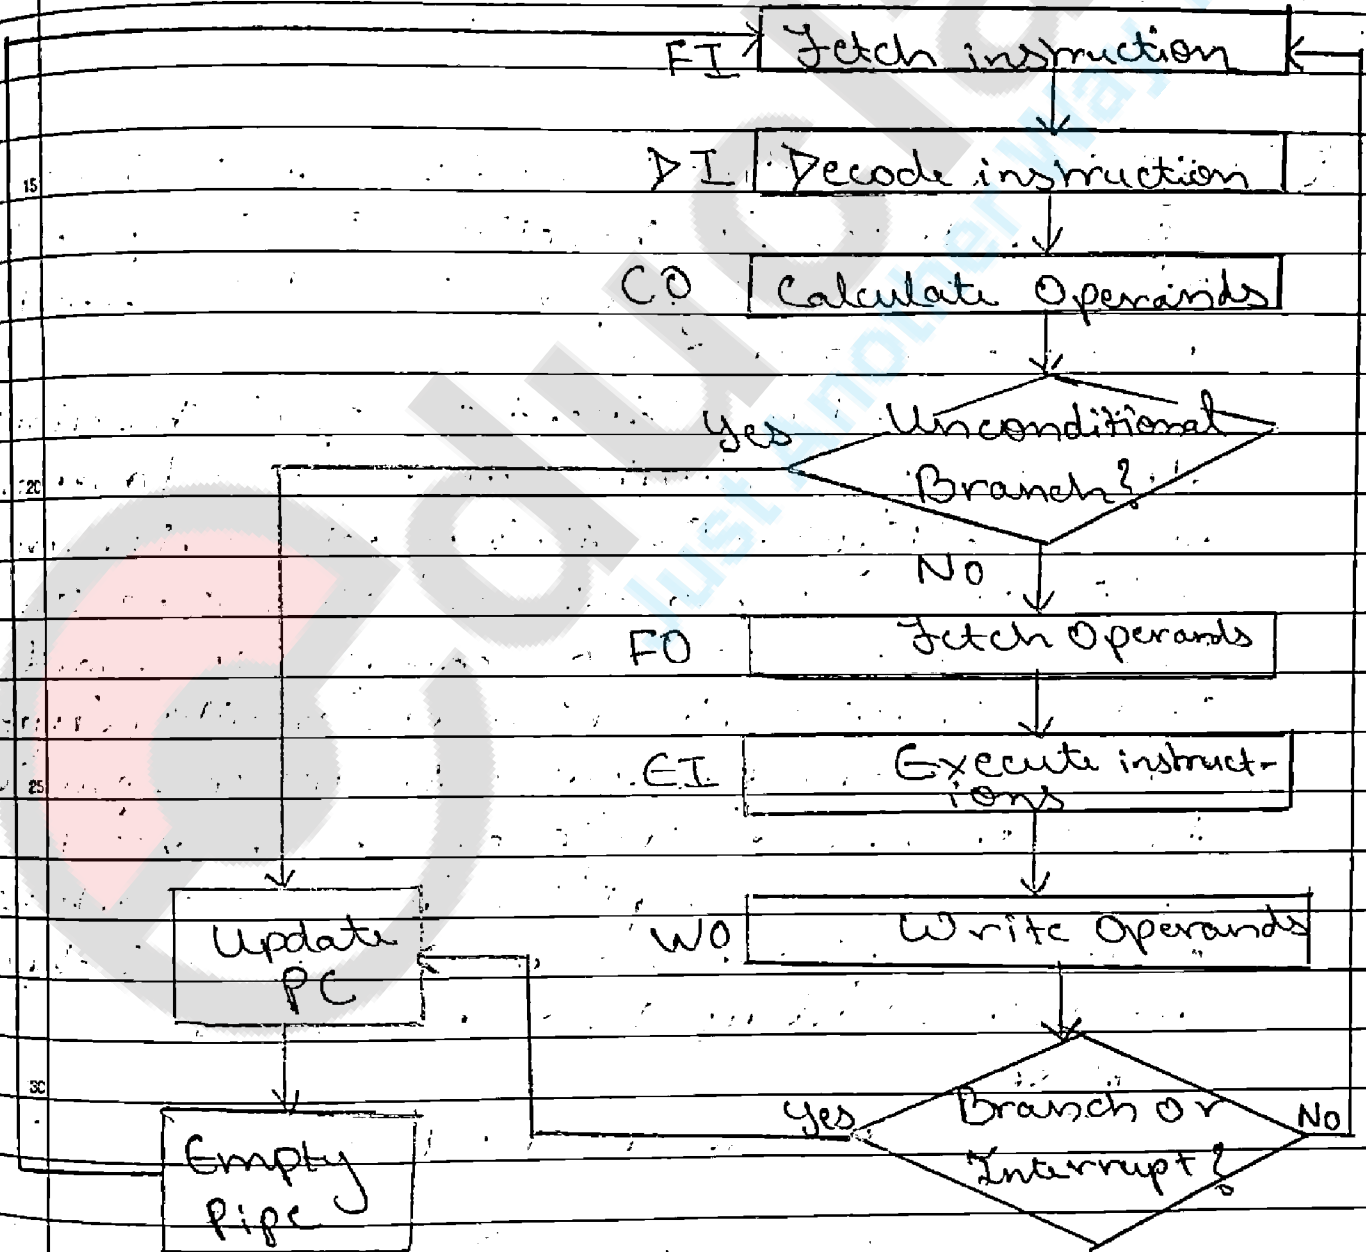 FI Fetch instruction
DI Decode instruction
15
CO Calculate Operands
Yes Unconditional
Branch?
20
No
FO Fetch Operands
EI Execute instruct-
ions
25
Update
PC
WO Write Operands
30
Yes Branch or No
Interrupt?
Empty
Pipe
Educla
Just Another Way